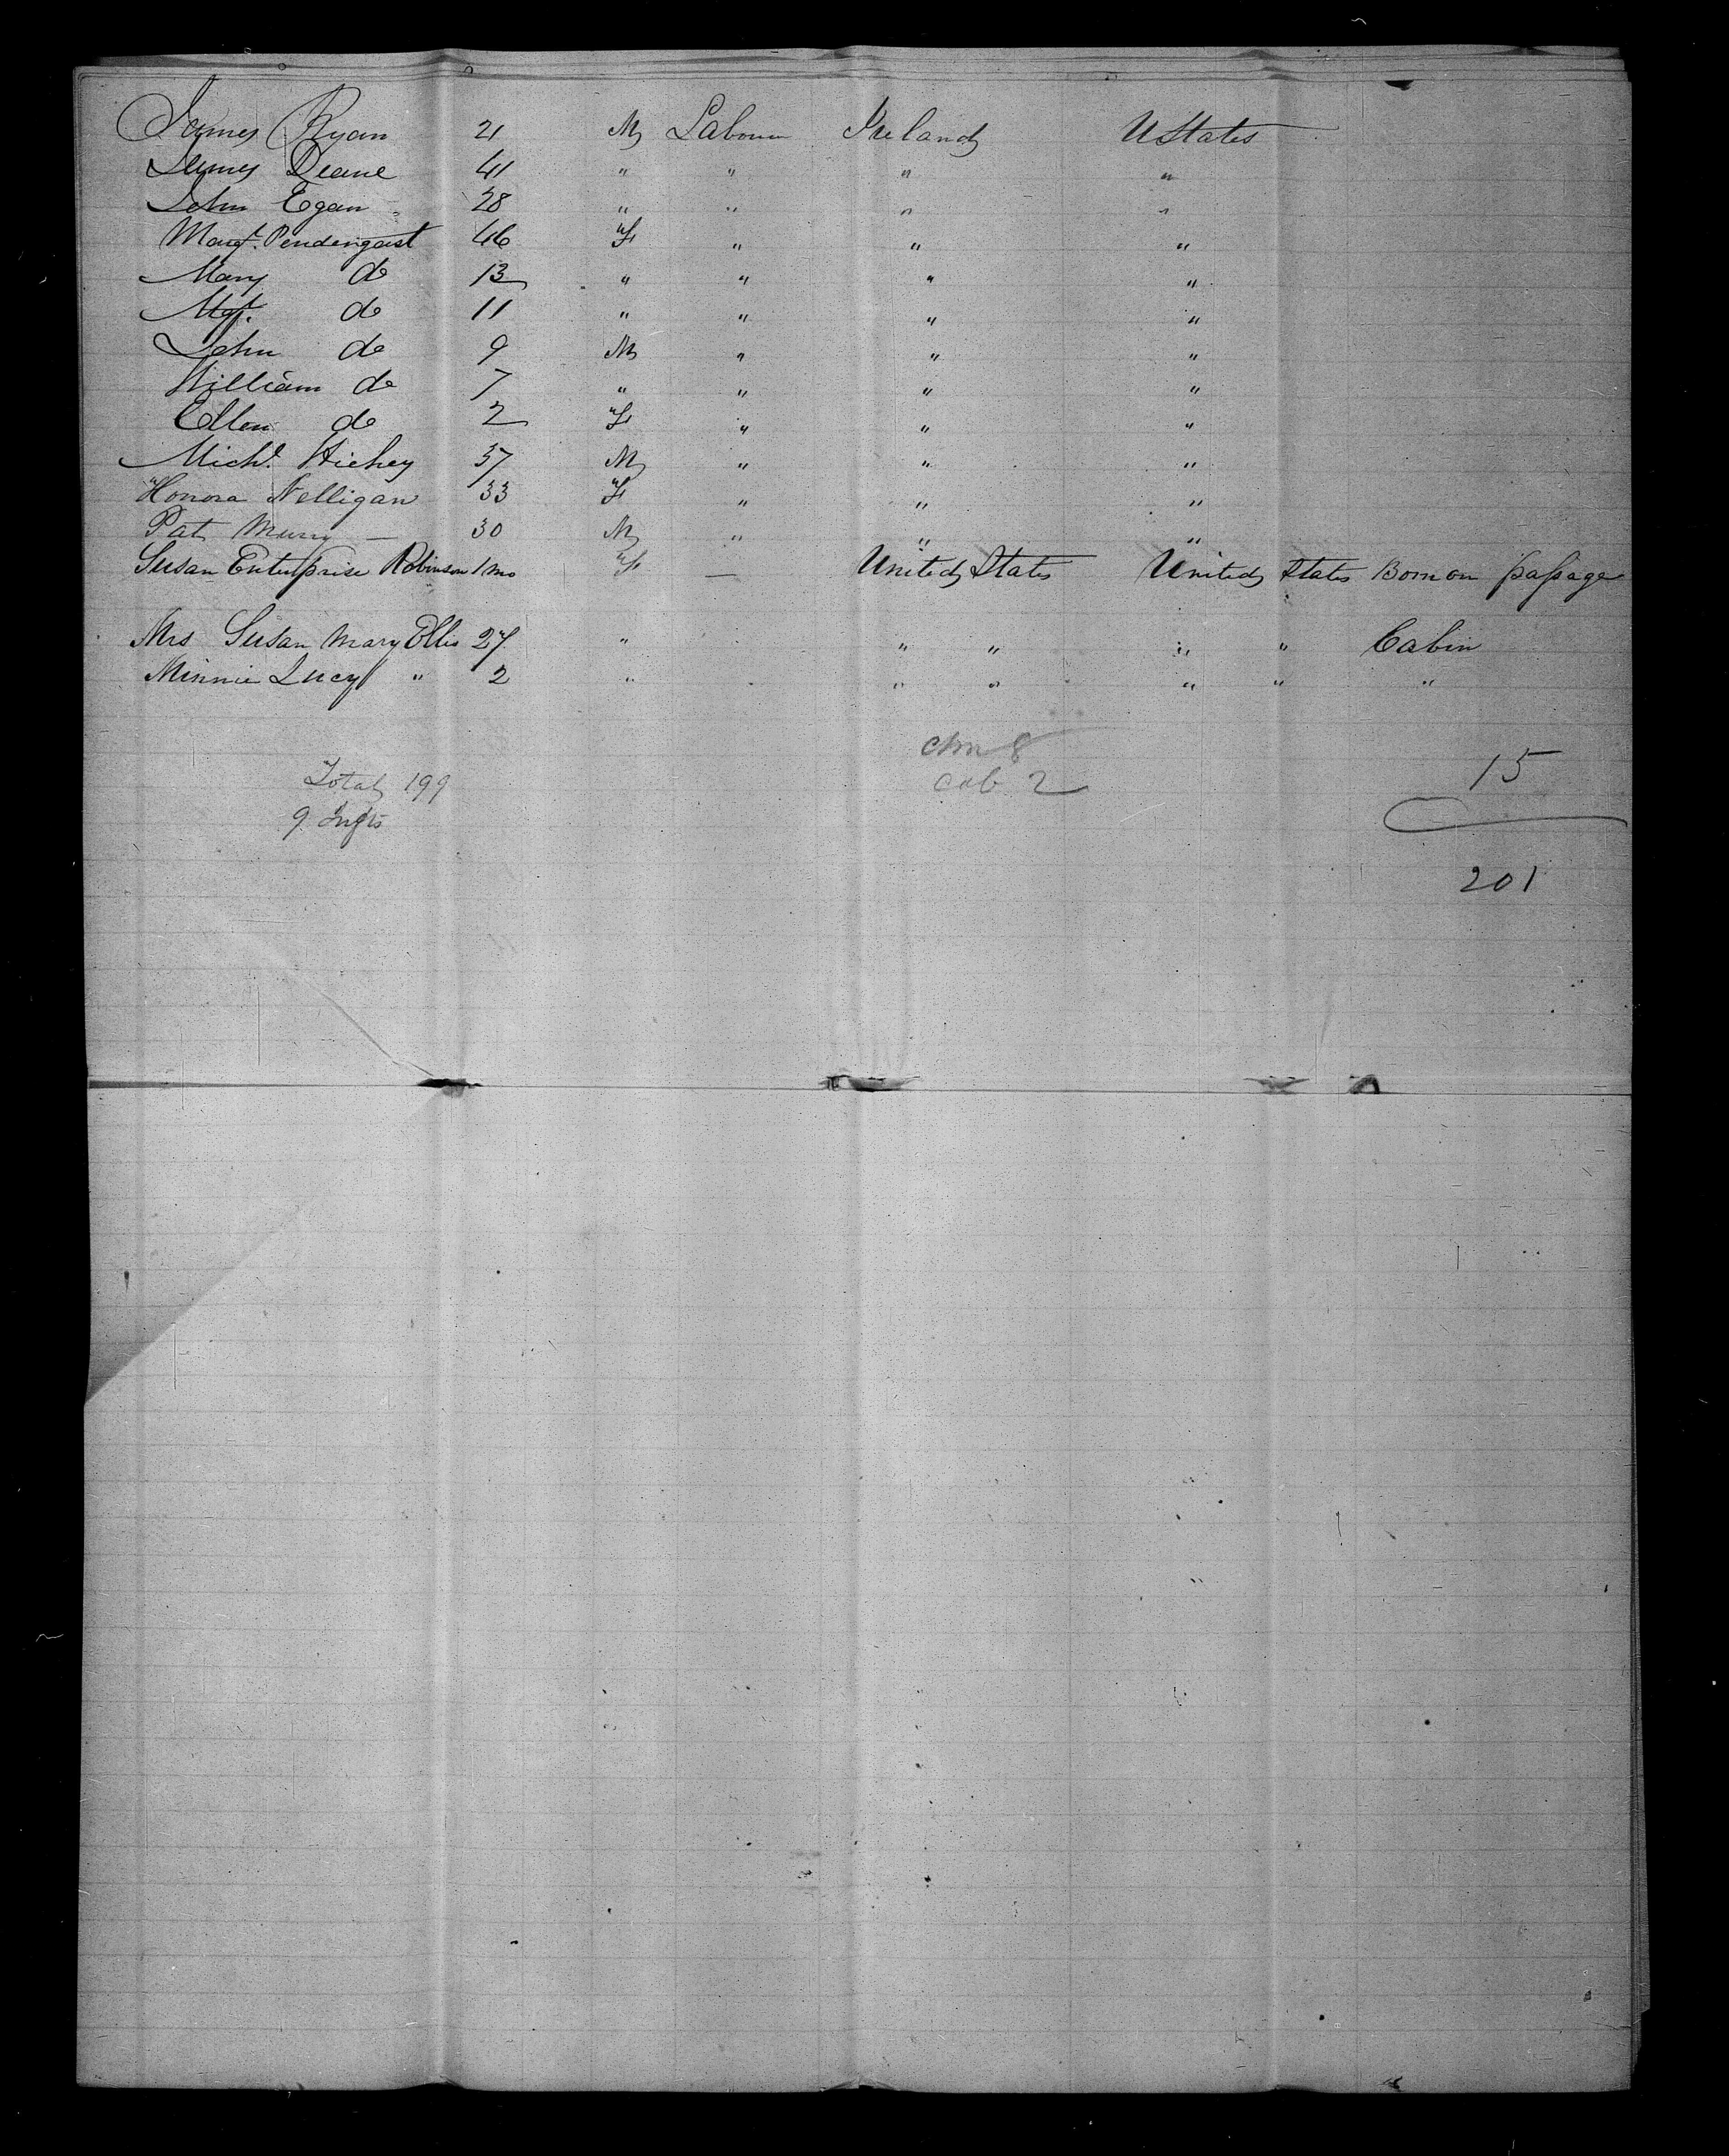 James Ryan 21 M Labourer Ireland U States
James Deane 41 " " " "
John Egan 28 " " " "
Margt. Pendergast 46 F " " "
Mary do 13 " " " "
Mgt. do 11 " " " "
John do 9 M " " "
William do 7 " " " "
Ellen do 2 F " " "
Michl. Hickey 37 M " " "
Honora Nelligan 33 F " " "
Pat Murry — 30 M " " "
Susan Enterprise Robinson 1 mo F — United States United States Born on passage
Mrs Susan Mary Ellis 27 " " " " " Cabin
Minnie Lucy " 2 " " " " " "
Chn 8
Total 199 Cab 2 15
9 Infts
201